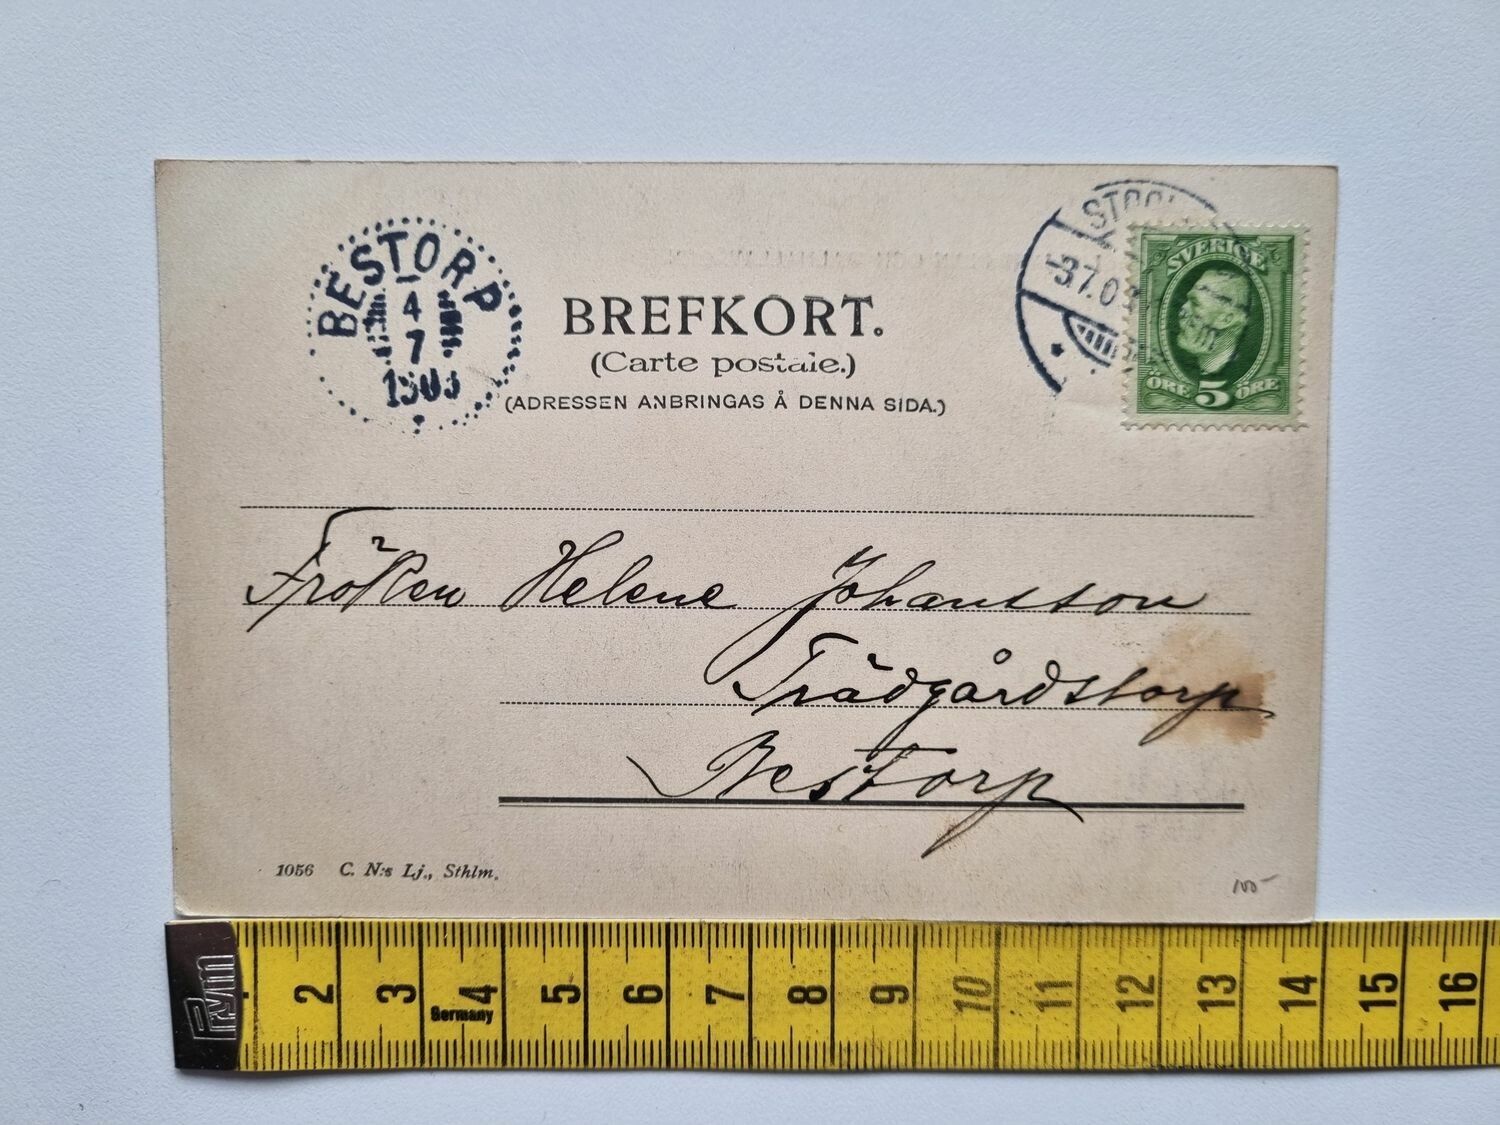 BESTORP
4
7
1903
BREFKORT.
(Carte postale.)
(ADRESSEN ANBRINGAS Å DENNA SIDA.)
-3.7.0
SVERIGE
ÖRE 5 ÖRE
Fröken Helene Johansson
Trädgårdstorp
Bestorp
1056 C. N:s Lj., Sthlm.
100-
Prym
2 3 4 5 6 7 8 9 10 11 12 13 14 15 16
Germany